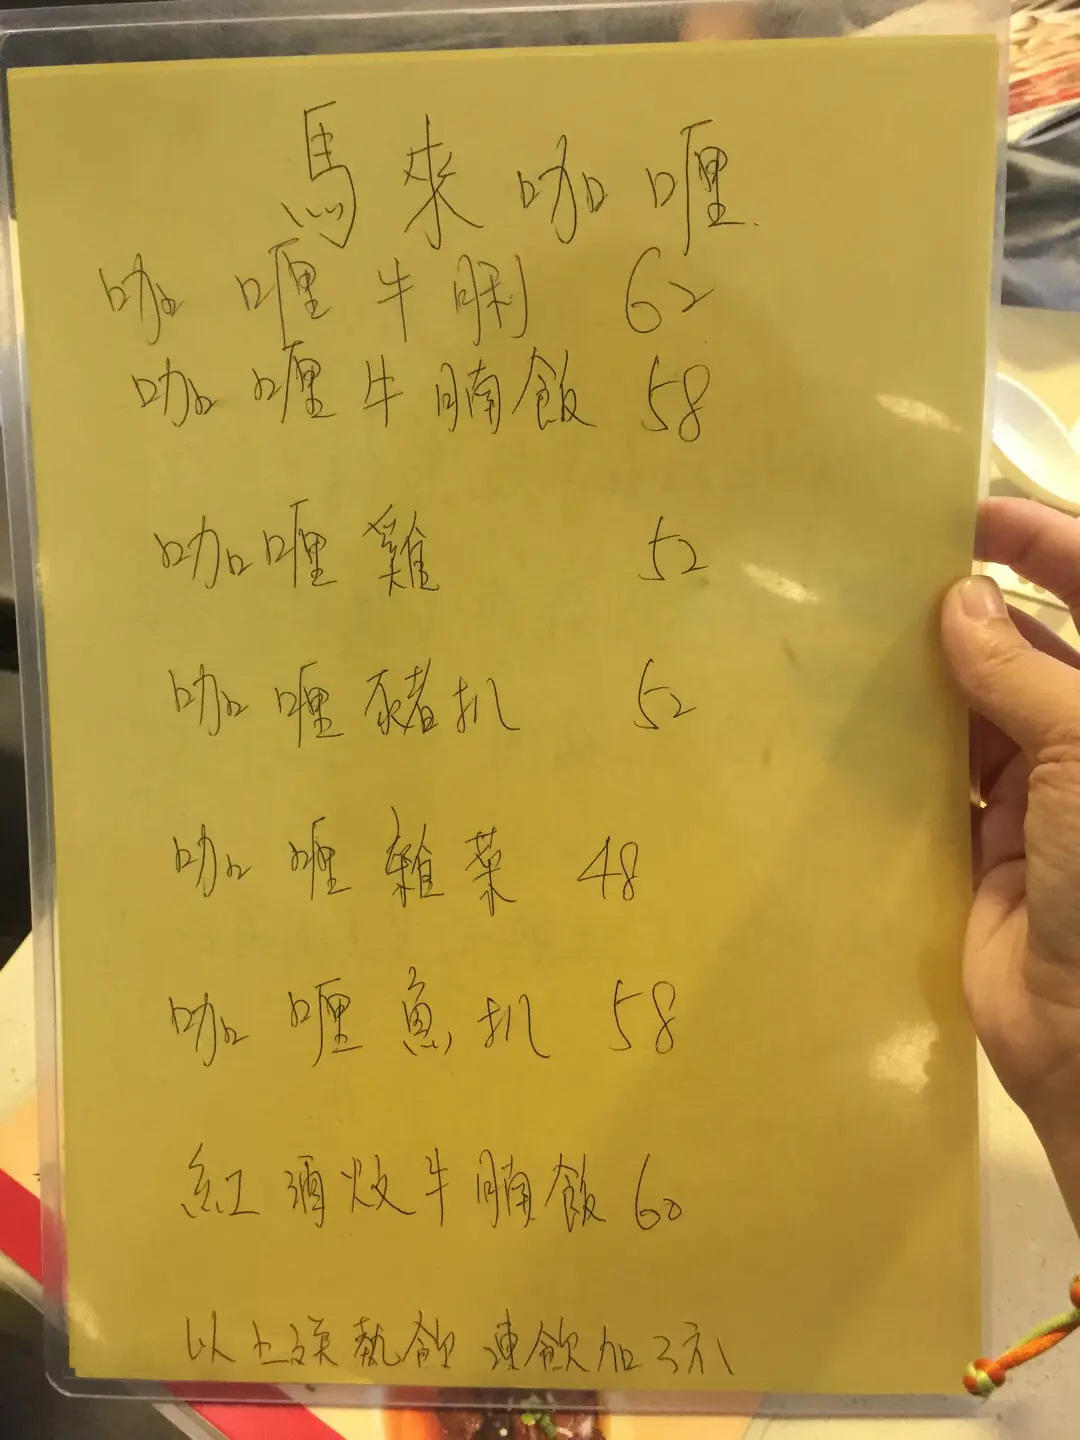 馬來咖喱
咖喱牛脷 62
咖喱牛腩飯 58
咖喱雞 52
咖喱豬扒 52
咖喱雜菜 48
咖喱魚扒 58
紅酒炆牛腩飯 60
以上送熱飲 凍飲加3元